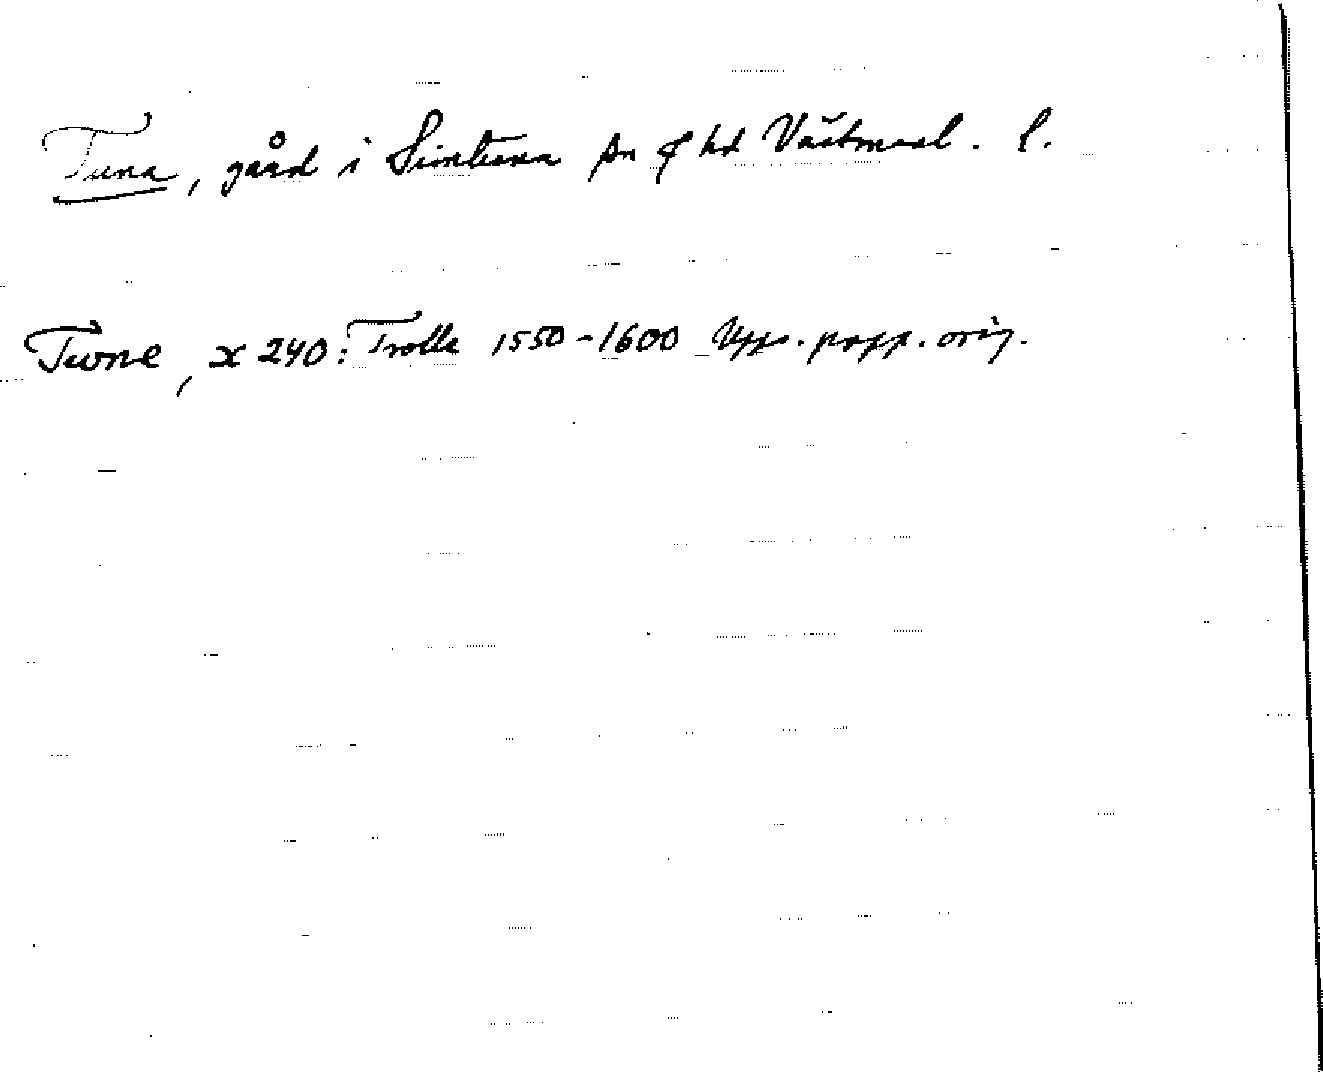 Tuna, gård i Simtuna sn ɟ hd Västmanl. l.
Twne, x 240: Trolle 1550-1600 Upps. papp. orig.